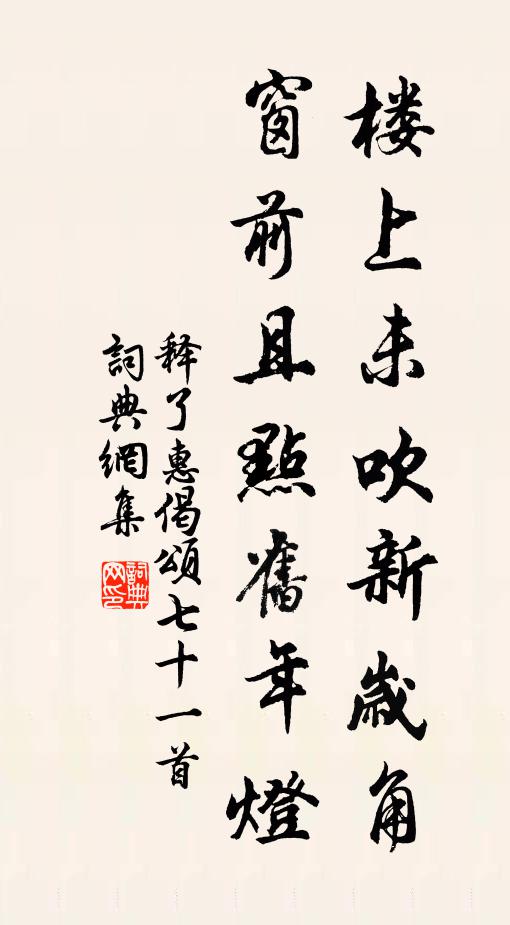 楼上未吹新歲角
窗前且點舊年燈
释了惠偈頌七十一首
詞典網集
詞典网印